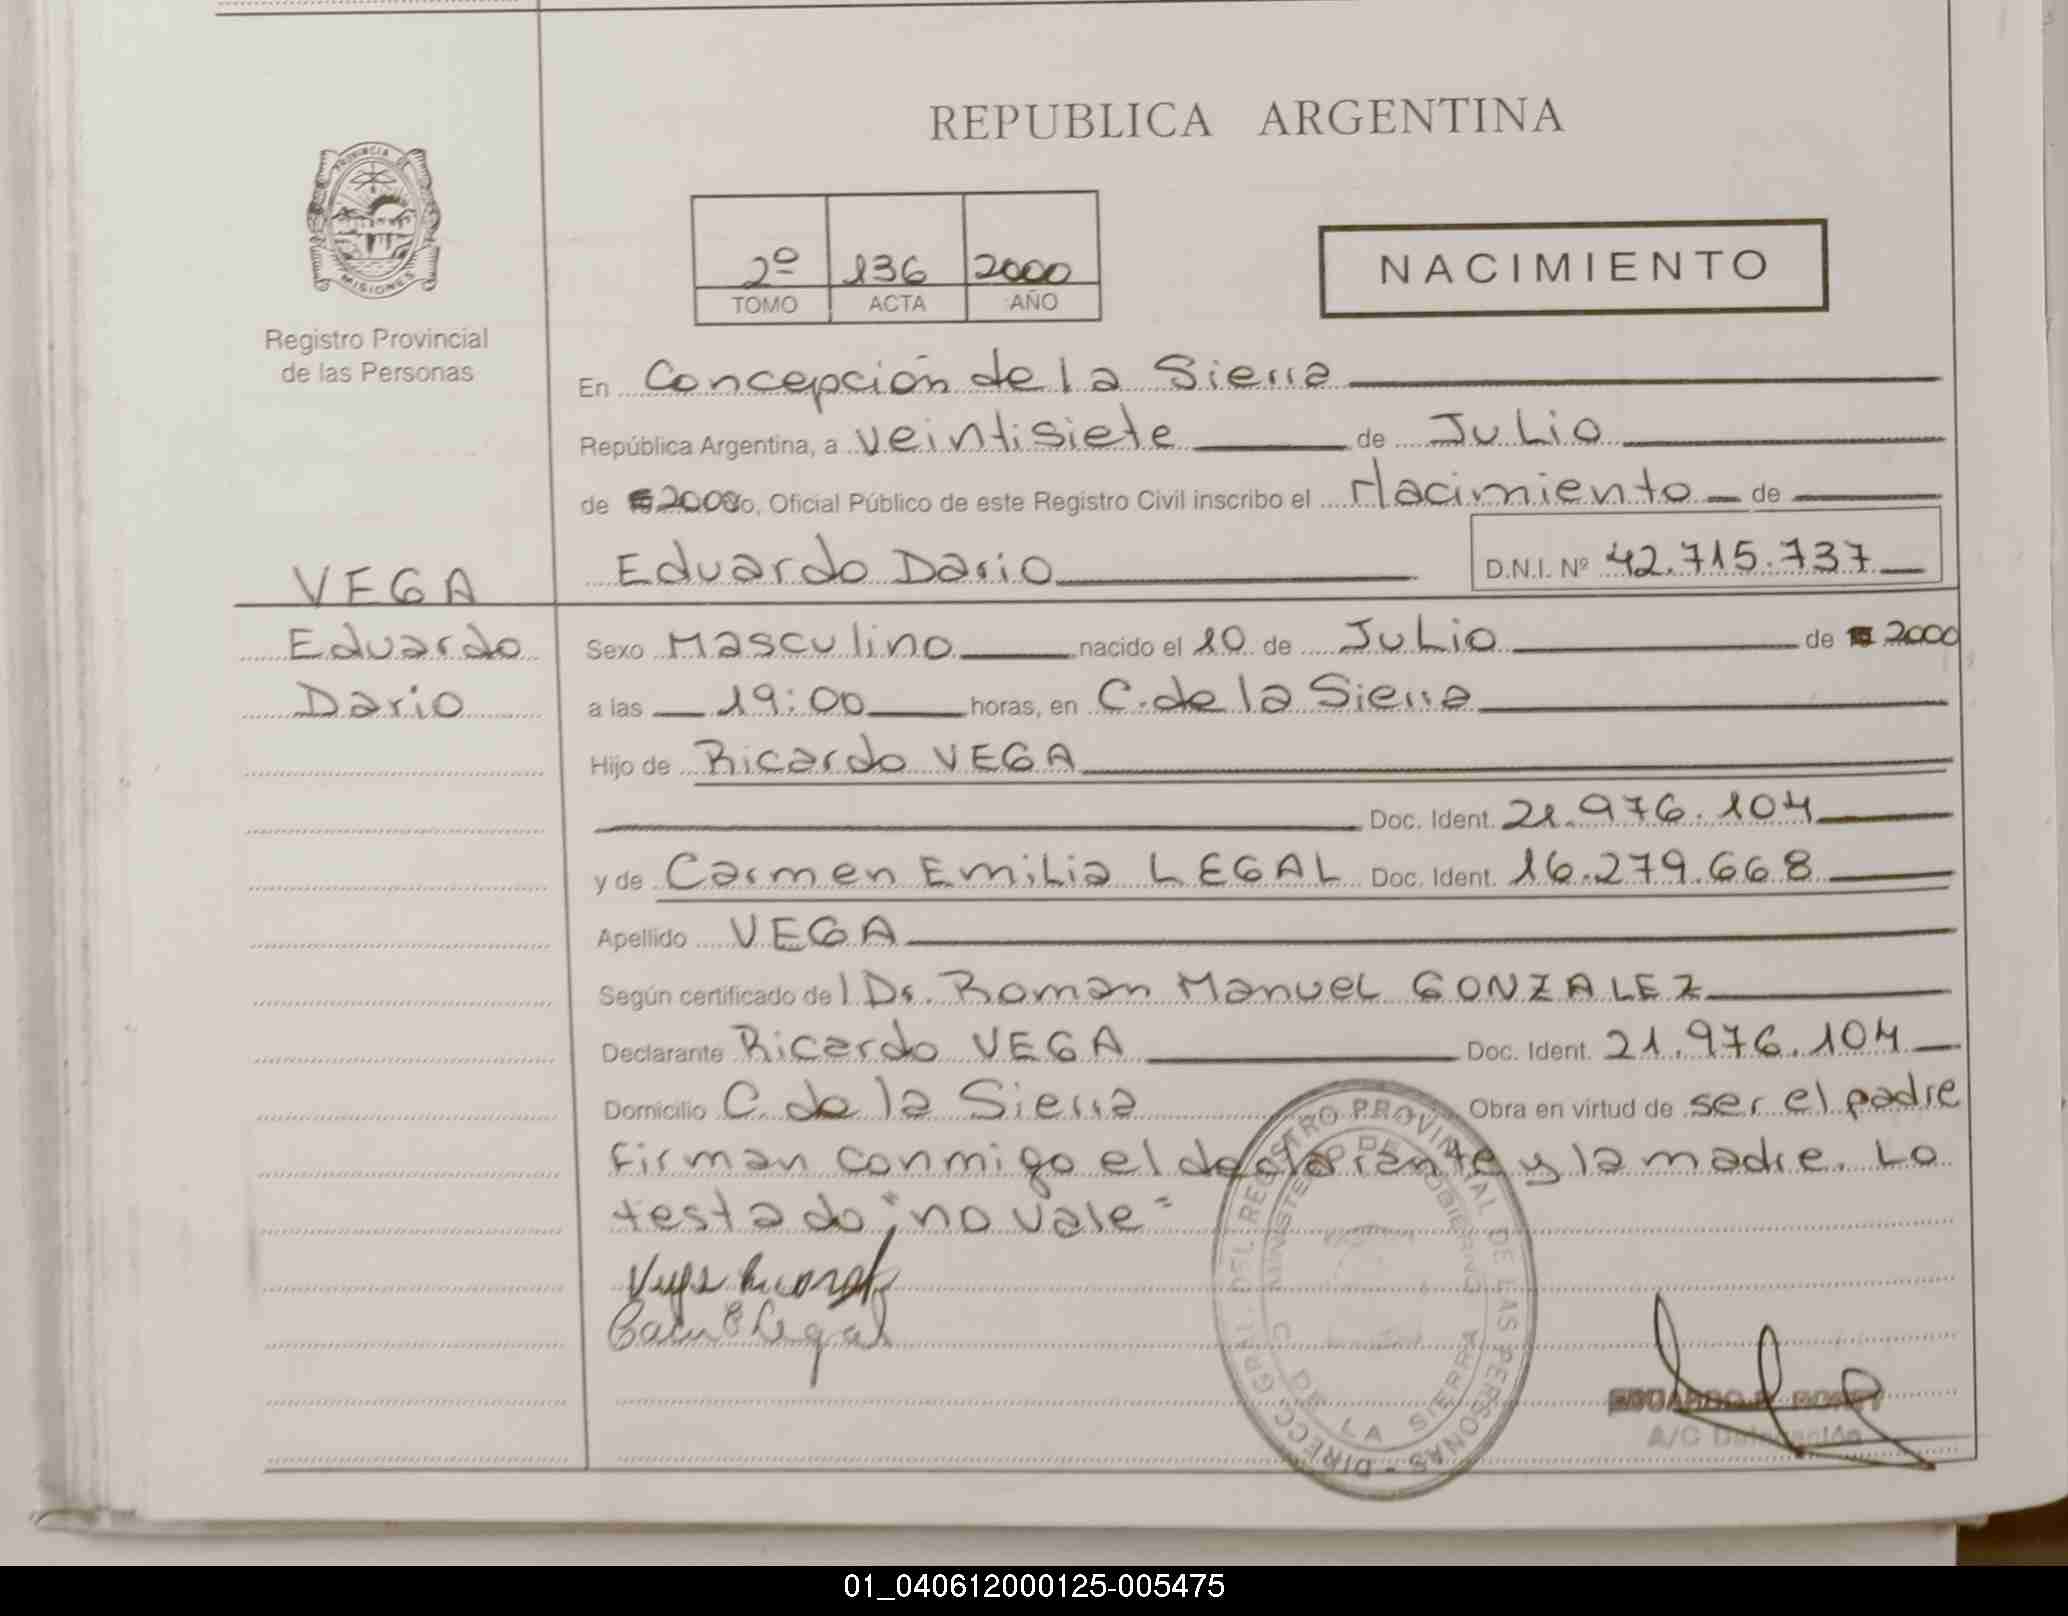 REPUBLICA ARGENTINA
PROVINCIA DE
MISIONES
Registro Provincial
de las Personas
2º 136 2000
TOMO ACTA AÑO
NACIMIENTO
En Concepción de la Sierra
República Argentina, a veintisiete de Julio
de 2000 yo, Oficial Público de este Registro Civil inscribo el Nacimiento de
Eduardo Dario D.N.I. Nº 42.715.737
VEGA
Eduardo
Dario
Sexo Masculino nacido el 10 de Julio de 2000
a las 19:00 horas, en C. de la Sierra
Hijo de Ricardo VEGA
Doc. Ident. 21.976.104
y de Carmen Emilia LEGAL Doc. Ident. 16.279.668
Apellido VEGA
Según certificado del Dr. Roman Manuel GONZALEZ
Declarante Ricardo VEGA Doc. Ident. 21.976.104
Domicilio C. de la Sierra Obra en virtud de ser el padre
firman conmigo el declarante y la madre. Lo
testado "no vale"
Legal
DIRECC. GRAL. DEL REGISTRO PROVINCIAL DE LAS PERSONAS -
MINISTERIO DE GOBIERNO
C. DE LA SIERRA
EDUARDO
A/C Delegación
01_040612000125-005475